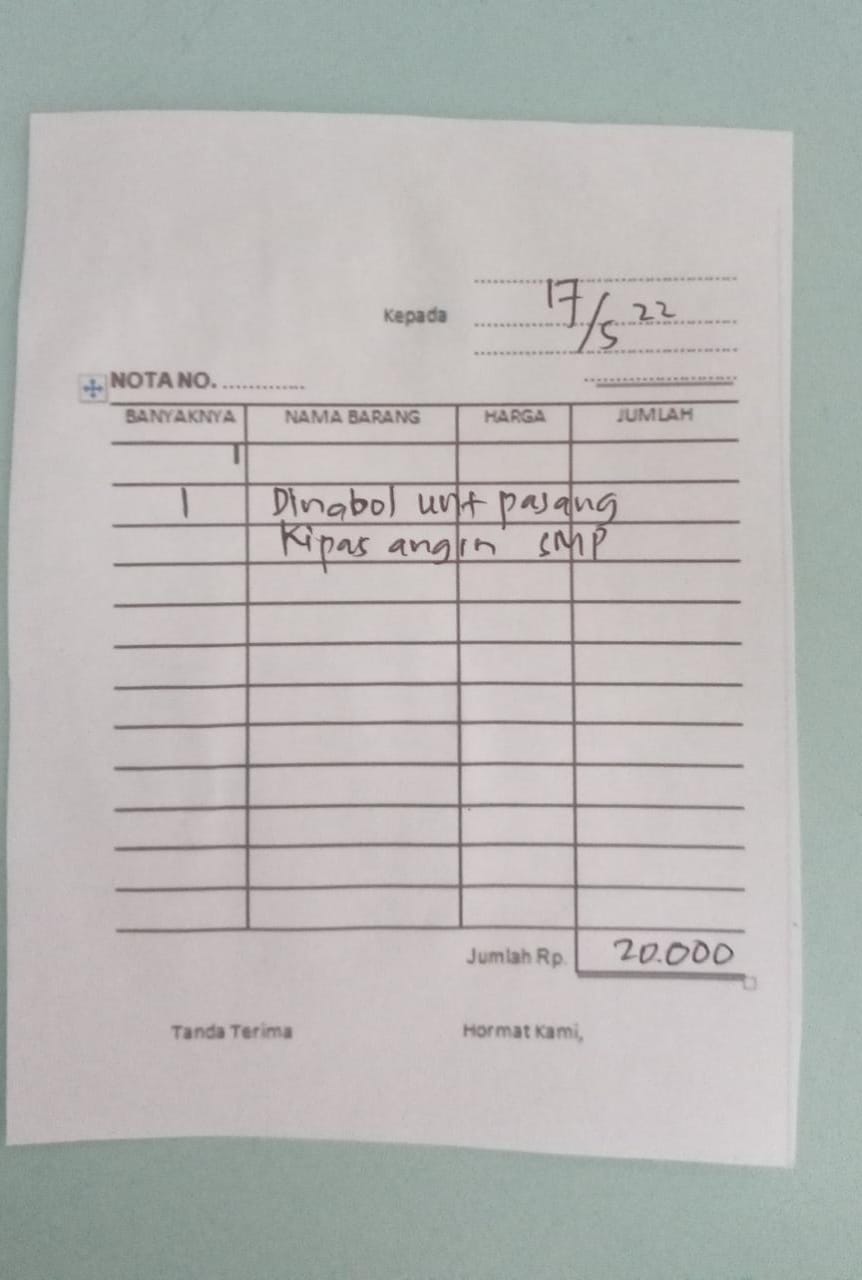 17/5 22
Kepada
NOTA NO. ............
BANYAKNYA NAMA BARANG HARGA JUMLAH
1 Dinabol unt pasang
Kipas angin SMP
Jumlah Rp. 20.000
Tanda Terima Hormat Kami,